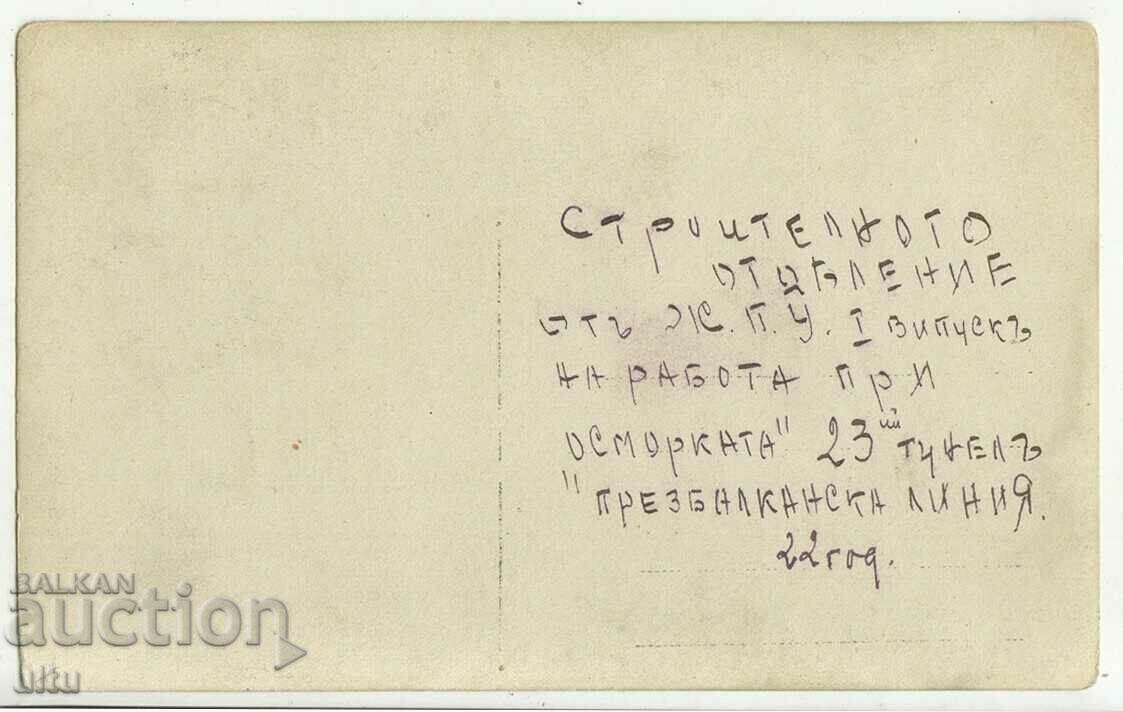 Строителното
отдѣление
отъ Ж.П.У. I випускъ
на работа при
осморката" 23ий тунелъ
"Презбалканска линия.
22 год.
BALKAN
auction
ultu